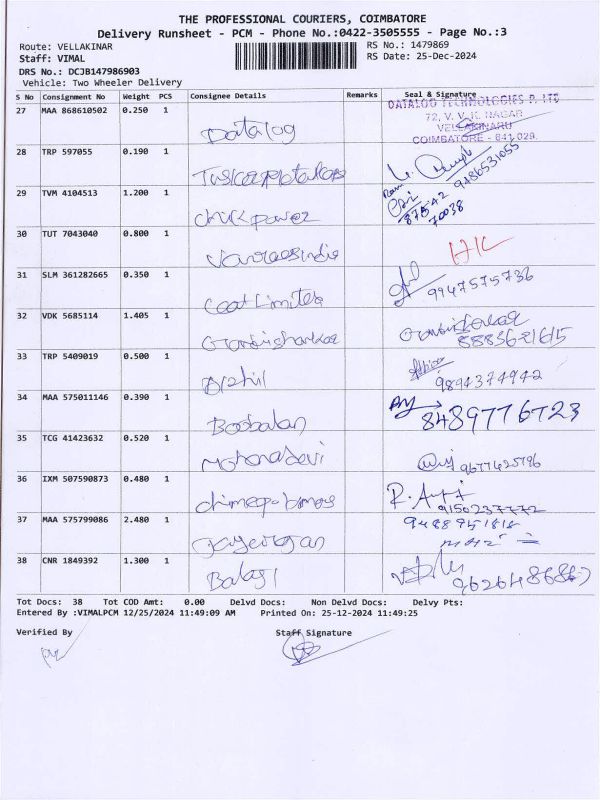 THE PROFESSIONAL COURIERS, COIMBATORE
Delivery Runsheet - PCM - Phone No.:0422-3505555 - Page No.:3
Route: VELLAKINAR RS No.: 1479869
Staff: VIMAL RS Date: 25-Dec-2024
DRS No.: DCJB147986903
Vehicle: Two Wheeler Delivery
S No Consignment No Weight PCS Consignee Details Remarks Seal & Signature
27 MAA 868610502 0.250 1 Datalog
DATALOG TECHNOLOGIES P. LTD
72, V. V. K. NAGAR
VELLAKINARU
COIMBATORE - 641 029.
28 TRP 597055 0.190 1 9486531055
29 TVM 4104513 1.200 1 87542
70038
30 TUT 7043040 0.800 1
31 SLM 361282665 0.350 1 9947575736
32 VDK 5685114 1.405 1 Gowrishankar
33 TRP 5409019 0.500 1 9894374942
34 MAA 575011146 0.390 1 Boobalan 8489776723
35 TCG 41423632 0.520 1 Mohanadevi 9677425796
36 IXM 507590873 0.480 1 9150237772
37 MAA 575799086 2.480 1
38 CNR 1849392 1.300 1 Balaji
Tot Docs: 38 Tot COD Amt: 0.00 Delvd Docs: Non Delvd Docs: Delvy Pts:
Entered By :VIMALPCM 12/25/2024 11:49:09 AM Printed On: 25-12-2024 11:49:25
Verified By Staff Signature